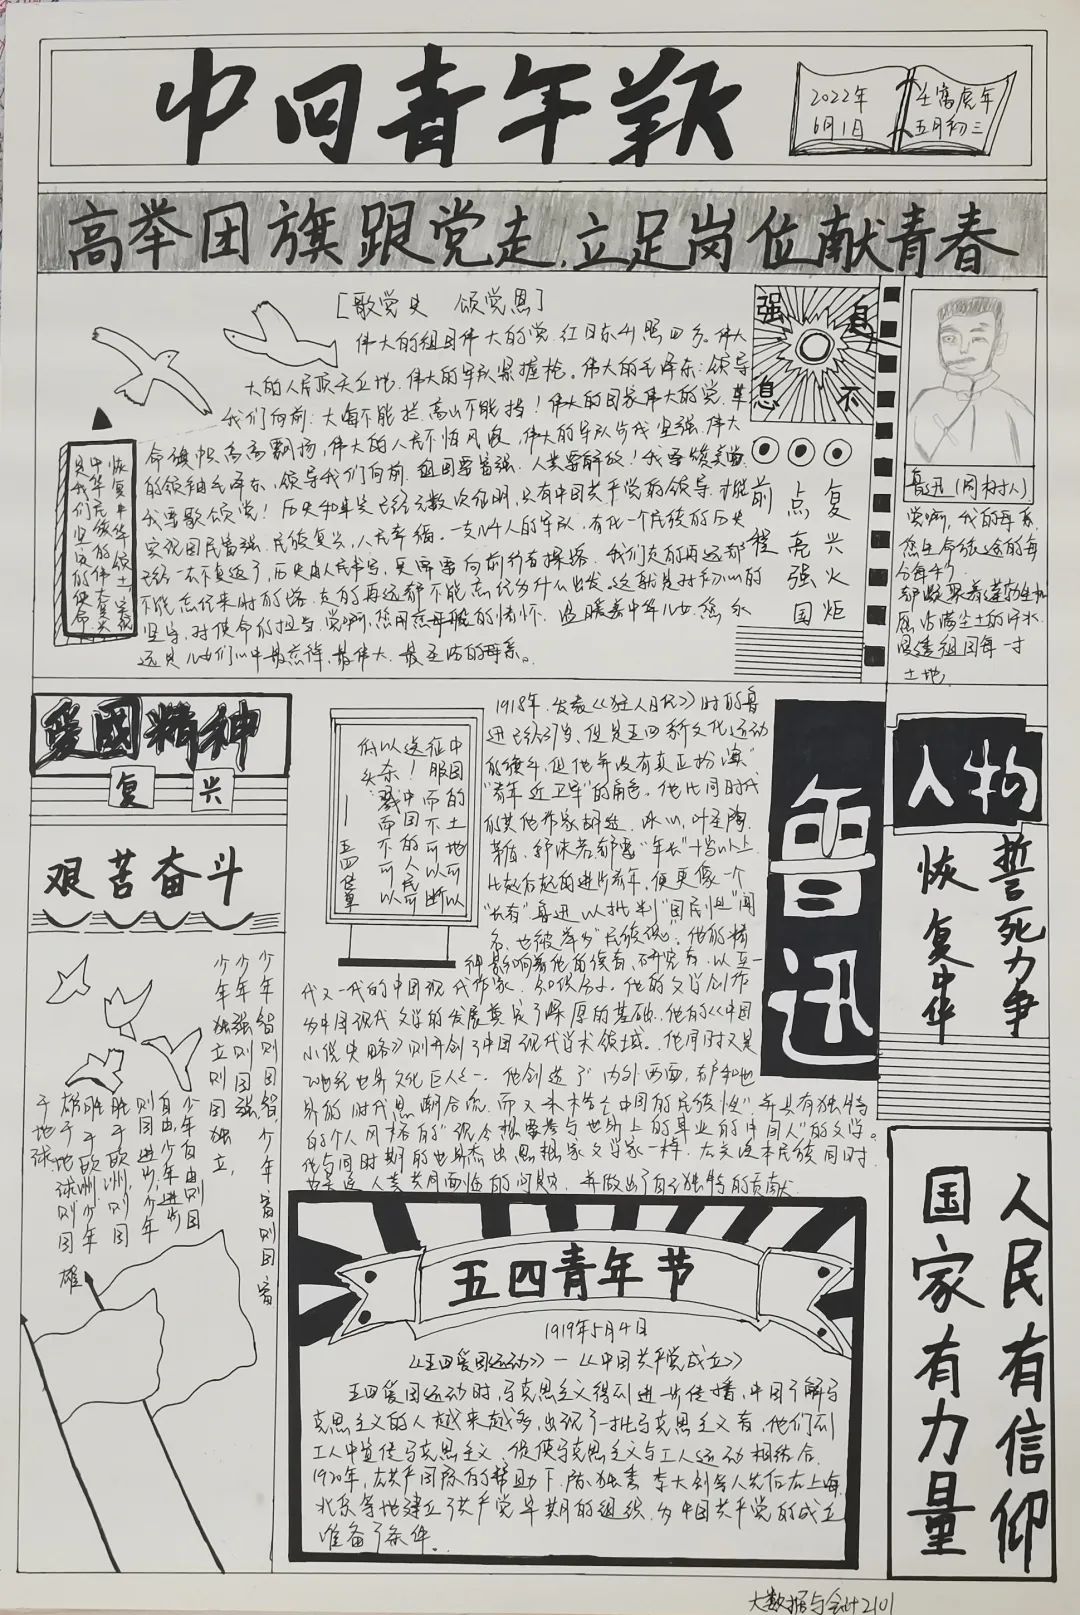 中国青年报
2022年
6月1日
壬寅虎年
五月初三
高举团旗跟党走.立足岗位献青春
[歌党史 颂党恩]
伟大的组国伟大的党.红日东升照四方。伟大
大的人民顶天立地.伟大的军队紧握枪。伟大的毛泽东:领导
我们向前:大海不能拦.高山不能挡!伟大的国家伟大的党.革
命旗帜高高飘扬,伟大的人民不怕风浪,伟大的军队步伐坚强.伟大
的领袖毛泽东,领导我们向前.组国要富强.人类要解放!我要赞美党.
我要歌颂党!历史和事实已经无数次证明,只有中国共产党的领导.才能
实现国民富强.民族复兴,人民幸福。
不能忘记来时的路.走的再远都不能忘记为什么出发。这就是对初心的
坚守.对使命的担当.党啊,您用慈母般的情怀.温暖着中华儿女.您永
远是儿女们心中最崇伟,最伟大.最圣洁的母亲。
恢复中华领土,实现
中华民族的伟大复兴
是我们坚定的使命
自强不息
前程
点亮强国
复兴火炬
鲁迅(周树人)
党啊,我的母亲,
您生命旅途的每
分每秒
土地
爱國精神
复兴
艰苦奋斗
少年智则国智,少年富则国富
少年强则国强
少年独立则国独立,
少年自由则国
自由,少年进步
则国进步,少年
胜于欧洲,则国
胜于欧洲,少年
雄于地球则国雄
于地球
中国的土地可以
征服而不可以断
送!中国的人民可
以杀戮而不可以
低头——五四宣言
1918年.发表《狂人日记》时的鲁
迅已经37岁.但是五四新文化运动
的健斗.但他并没有真正扮演
“青年近卫军”的角色。他比同时代
的其他作家胡适.冰心,叶圣陶.
茅盾.郭沫若都要“年长”十岁以上
比起后起的进步青年,便更像一个
“长者”鲁迅以批判“国民性”闻
名.也被誉为“民族魂”.他的精
神影响着他的读者、研究者.以至一
代又一代的中国现代作家.知识分子.他的文学创作
为中国现代文学的发展奠定了深厚的基础.他的《中国
小说史略》则开创了中国现代学术领域。他同时又是
20世纪世界文化巨人之一.
他与同时期的世界杰出思想家文学家一样.在关注本民族同时.
也关注人类共同面临的问题.并做出了自己独特的贡献
鲁迅
人物
誓死力争
恢复中华
五四青年节
1919年5月4日
《五四爱国运动》—《中国共产党成立》
五四爱国运动时,马克思主义得到进一步传播,中国了解马
克思主义的人越来越多,出现了一批马克思主义者,他们到
工人中宣传马克思主义,促使马克思主义与工人运动相结合.
1920年,在共产国际的帮助下,陈独秀 李大钊等人先后在上海.
北京等地建立了共产党早期的组织.为中国共产党的成立
准备了条件.
人民有信仰
国家有力量
大数据与会计2101